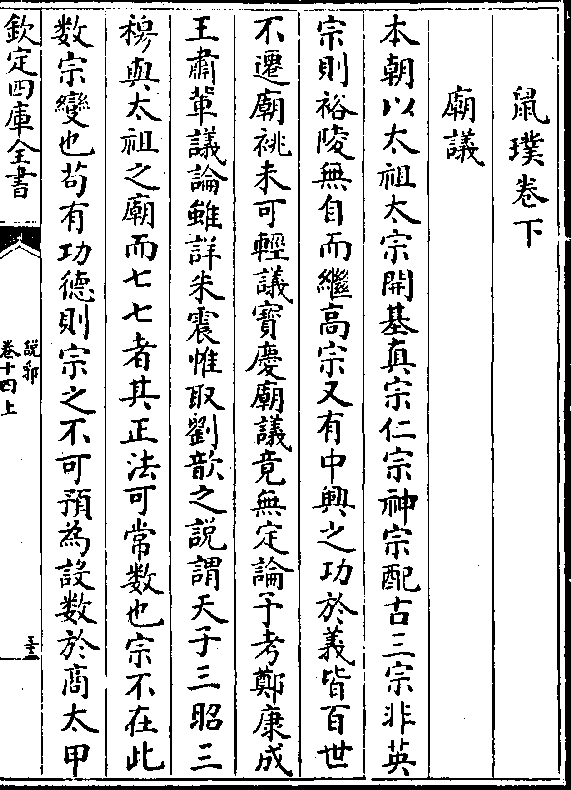 鼠璞卷下
廟議
本朝以太祖太宗開基真宗仁宗神宗配古三宗非英
宗則裕陵無自而繼高宗又有中興之功於義皆百世
不遷廟祧未可輕議寳慶廟議竟無定論予考鄭康成
王肅軰議論雖詳朱震惟取劉歆之説謂天子三昭三
穆與太祖之廟而七七者其正法可常数也宗不在此
数宗變也苟有功德則宗之不可預為設数於商太甲
欽定四庫全書
説郛
卷十四上
三十三